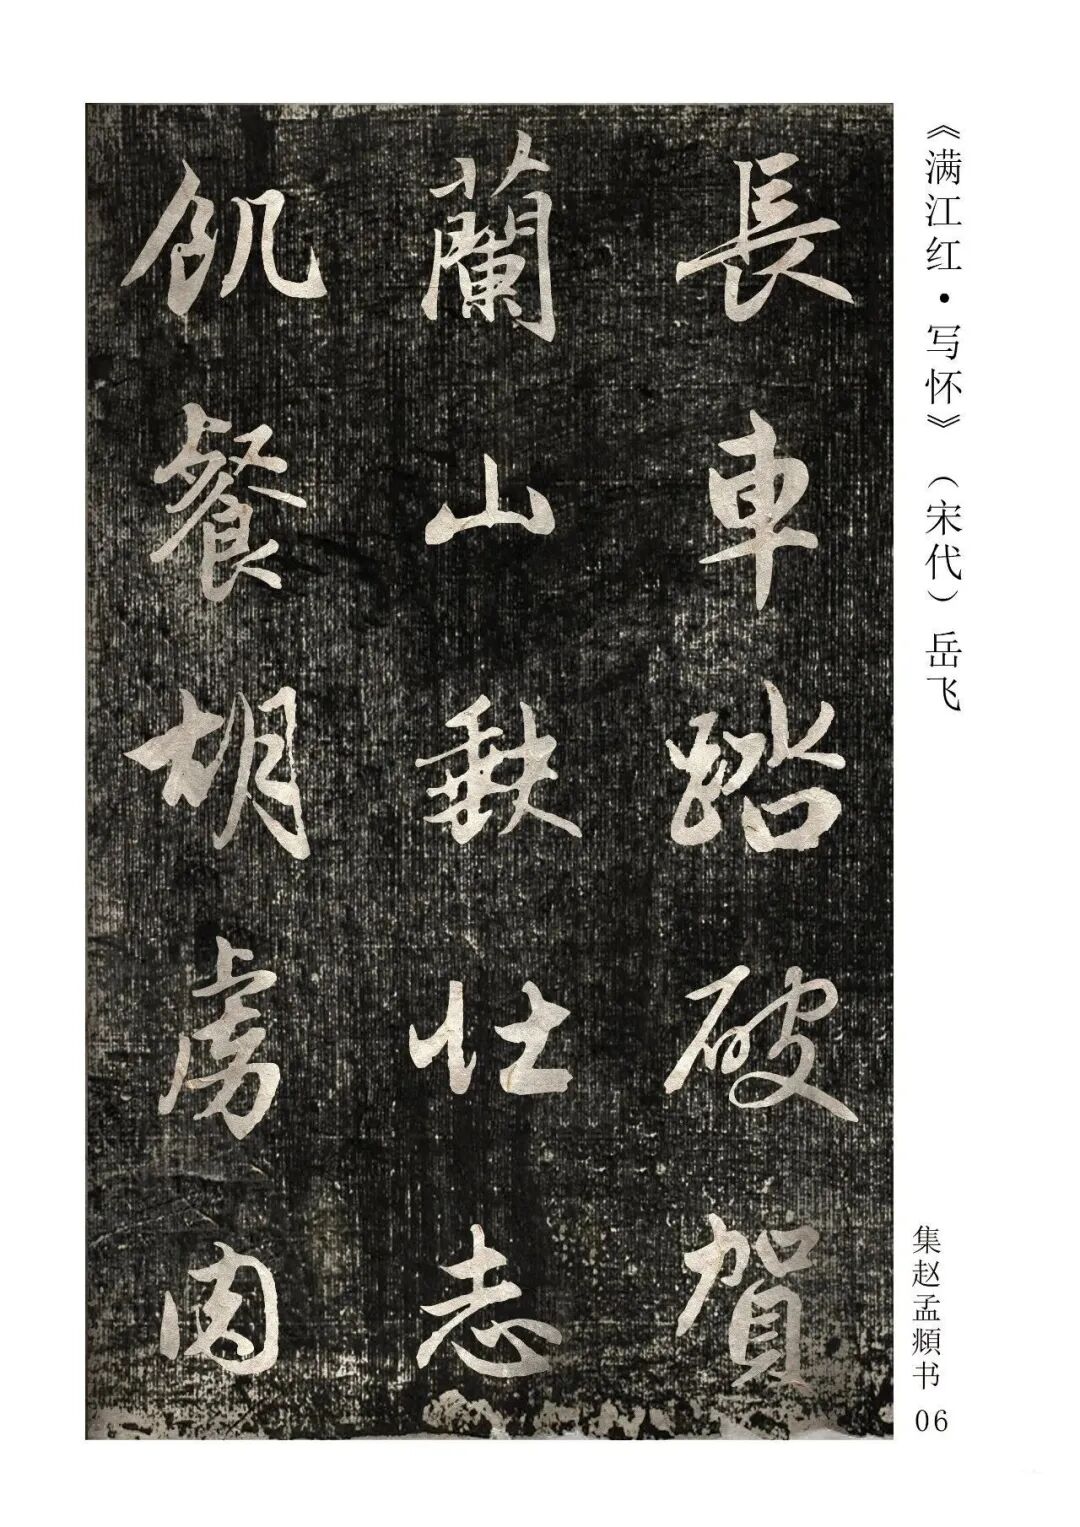 《满江红·写怀》（宋代）岳飞
集赵孟頫书 06
長車踏破賀
蘭山缺壮志
飢餐胡虜肉